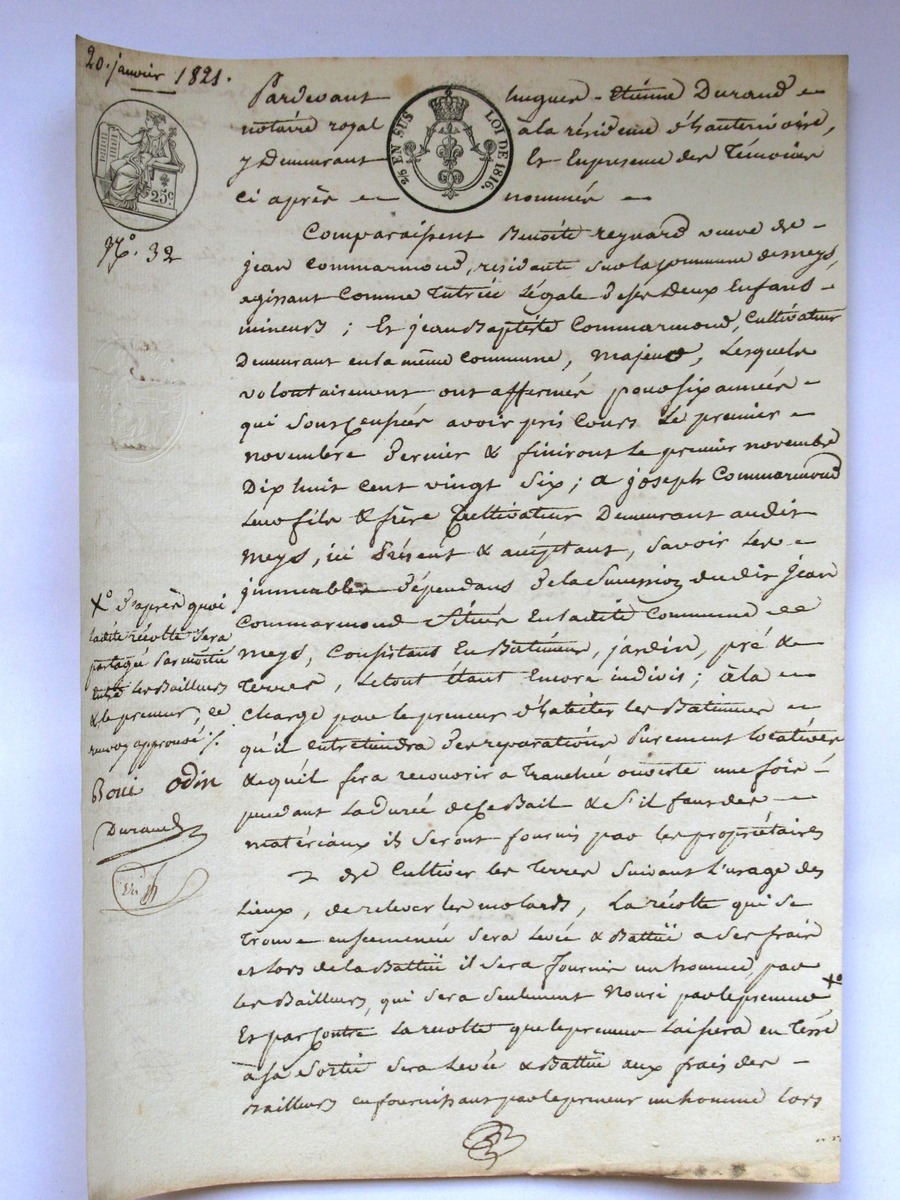 20. janvier 1821.
25c
25 EN SUS LOI DE 1816
N.º 32
Pardevant hugues - Etienne Durand
notaire royal à la résidence d'hauterivoire,
y Demeurant Et En presence des Témoins
ci après nommés
Comparaissent Benoite reynard veuve de
jean Commarmond, residante sur la Commune de meys,
agissant Comme Tutrice Légale de ses Deux Enfans
mineurs; Et jean Baptiste Commarmond, Cultivateur
Demeurant en la même Commune, majeur, Lesquels
volontairement ont affermés pour six années
qui sont Censées avoir pris Cours Le premier
novembre dernier & finiront Le premier novembre
Dix huit cent vingt six; a joseph Commarmond
Leur fils & frère Cultivateur Demeurant audit
meys, ici Présent & acceptant, savoir Les
immeubles Dépendans de la Succession dudit jean
Commarmond Situés En ladite Commune de
meys, Consistant En Batimens, jardin, pré &
Terres, Le tout étant Encore indivis; à la
Charge par le preneur d'habiter les Batimens
qu'il entretiendra des reparations Purement Locatives
& qu'il fera recouvrir a tranchée ouverte une fois
pendant La Durée de Ce Bail & s'il faut des
matériaux il seront fournis par les propriétaires
de Cultiver les Terres suivant L'usage des
Lieux, de relever les molards, La récolte qui se
Trouve ensemencée sera Levée & Battüe a ses frais
et Lors de la Battüe il sera fournir un homme, par
Les Bailleurs, qui sera seulement Nouri par le preneur Xº
Et par Contre La récolte que le preneur Laissera en Terre
à sa Sortie sera Levée & Battüe aux frais des
Bailleurs en fournissant par le preneur un homme Lors
Xº D'après quoi
ladite récolte sera
partagée Par moitié
entre Les Bailleurs
& le preneur, ce
renvoi approuvé ./.
Odin
Durand